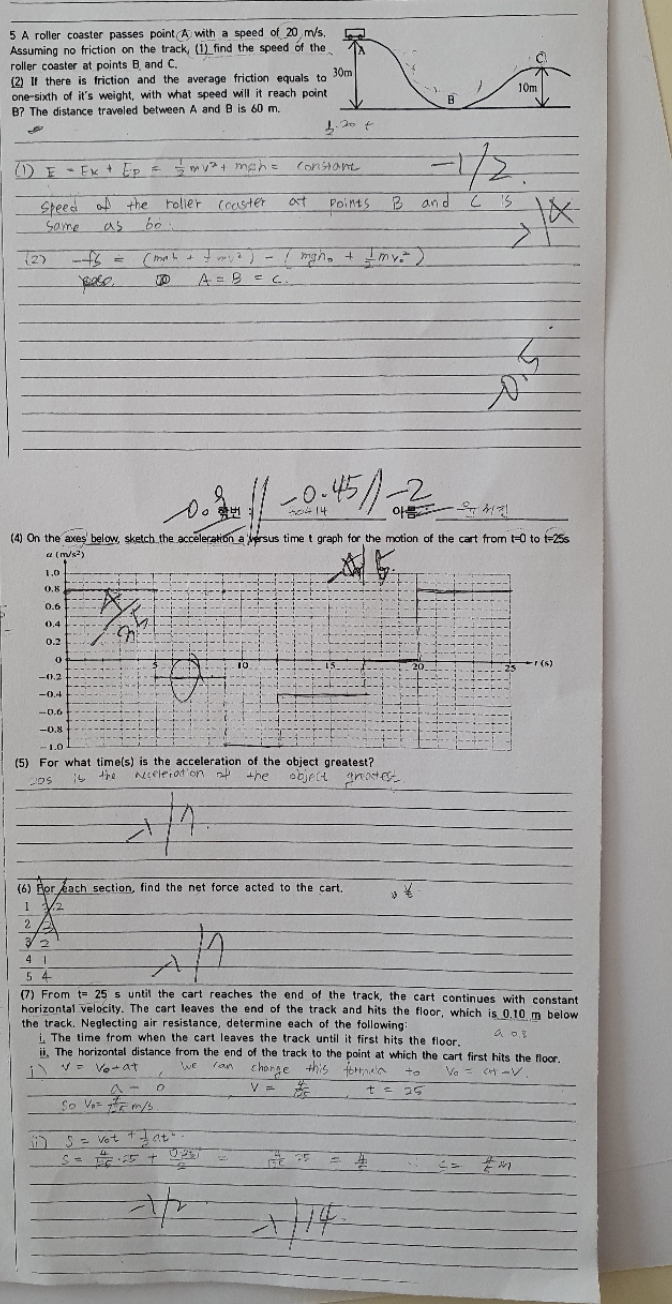 5 A roller coaster passes point A with a speed of 20 m/s.
Assuming no friction on the track, (1) find the speed of the
roller coaster at points B and C.
(2) If there is friction and the average friction equals to
one-sixth of it's weight, with what speed will it reach point
B? The distance traveled between A and B is 60 m.
A
30m
B
C
10m
(1) E = Ek + Ep = ½mv² + mgh = constant
-1/2
Speed of the roller coaster at points B and C is
same as
(2) -fs = (mgh + ½mv²) - (mgh₀ + ½mv₀²)
A = B = C.
-0.45// -2
학번 :
(4) On the axes below, sketch the acceleration a versus time t graph for the motion of the cart from t=0 to t=25s
a (m/s²)
1.0
0.8
0.6
0.4
0.2
0
-0.2
-0.4
-0.6
-0.8
-1.0
5
10
15
20
25
t (s)
(5) For what time(s) is the acceleration of the object greatest?
is the acceleration of the object greatest
(6) For each section, find the net force acted to the cart.
1
2
3 2
4 1
5 4
(7) From t= 25 s until the cart reaches the end of the track, the cart continues with constant
horizontal velocity. The cart leaves the end of the track and hits the floor, which is 0.10 m below
the track. Neglecting air resistance, determine each of the following:
i. The time from when the cart leaves the track until it first hits the floor.
ii. The horizontal distance from the end of the track to the point at which the cart first hits the floor.
i) V = V₀+at, we can change this formula to V₀ = at-V.
V = t = 25
So V₀= m/s
ii) S = V₀t + ½at²